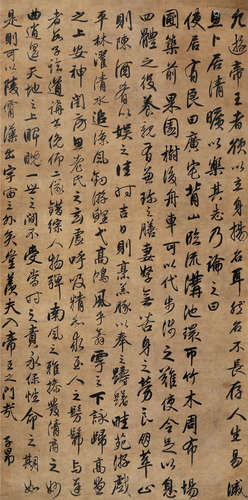 凡遊帝王者欲以立身揚名耳而名不長存人生易滅
且卜居清曠以樂其志乃論之曰
使居有良田廣宅背山臨流溝池環帀竹木周布場
圃築前果園樹後舟車可以代步涉之難使令足以息
四體之役養親有兼珍之膳妻孥無苦身之勞良朋萃止
則陳酒肴以娛之佳時吉日則烹羔豚以奉之躊躇畦苑遊戲
平林濯清水追涼風釣游鯉弋高鴻風乎舞雩之下詠歸高堂
之上安神閨房思老氏之玄虛呼吸精和求至人之髣髴與達
者數子論道講書俯仰二儀錯綜人物彈南風之雅操發清商之妙
曲逍遙天地之上睥睨一世之間不受當時之責永保性命之期如
是則可以陵霄漢出宇宙之外矣豈羨夫入帝王之門哉 子昂